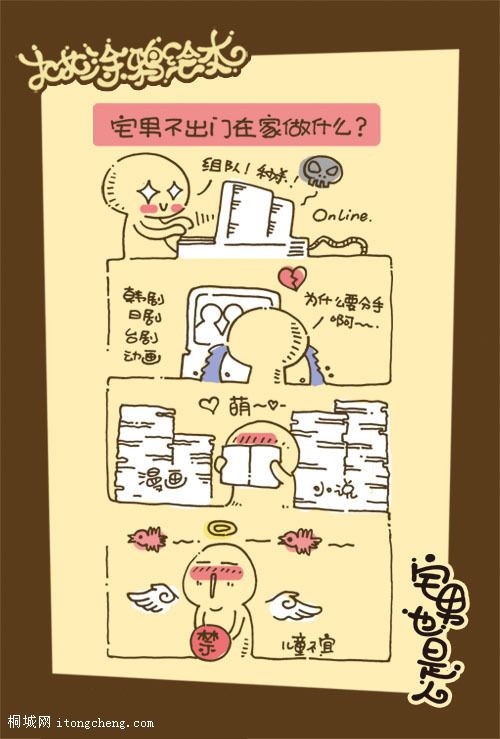 大女涂鸦绘本
宅男不出门在家做什么?
组队!秒杀!
Online.
韩剧
日剧
台剧
动画
为什么要分手
啊~~.
萌~
漫画
小说
禁
儿童不宜
宅男也是人
桐城网 itongcheng.com